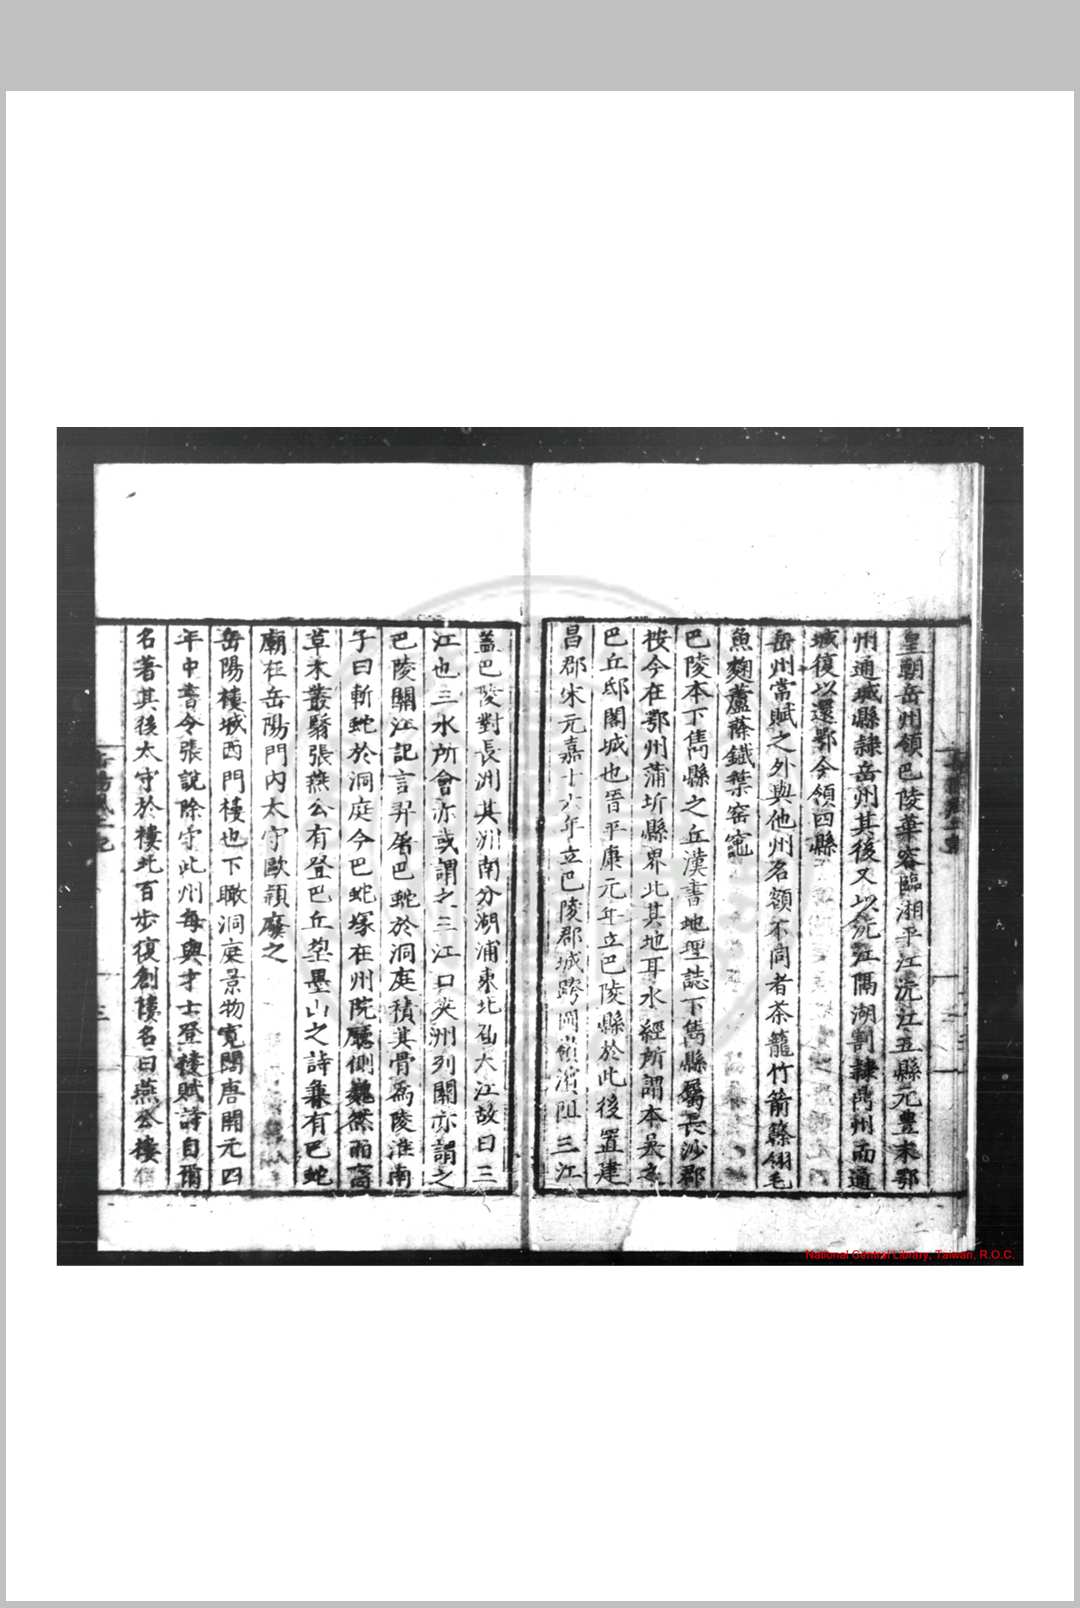 皇朝岳州領巴陵華容臨湘平江沅江五縣元豊末鄂
州通城縣隸岳州其後又以沅江隔湖割隸鼎州而通
城復以還鄂今領四縣
岳州常賦之外與他州名額不同者茶籠竹箭簳翎毛
魚麴蘆蕟鐵葉窑竃
巴陵本下雋縣之丘漢書地理誌下雋縣屬長沙郡
按今在鄂州蒲圻縣界此其地耳水經所謂本吳之
巴丘邸閣城也晉平康元年立巴陵縣於此後置建
昌郡宋元嘉十六年立巴陵郡城跨岡嶺濱阻三江
盖巴陵對長洲其洲南分湖浦東北届大江故曰三
江也三水所會亦或謂之三江口夾洲列關亦謂之
巴陵關江記言羿屠巴蛇於洞庭積其骨爲陵淮南
子曰斬蛇於洞庭今巴蛇塚在州院廳側巍然而高
草木叢翳張燕公有登巴丘望墨山之詩兼有巴蛇
廟在岳陽門内太守歐頴廢之
岳陽樓城西門樓也下瞰洞庭景物寛闊唐開元四
年中書令張說除守此州每與才士登樓賦詩自爾
名著其後太守於樓北百步復創樓名曰燕公樓
三